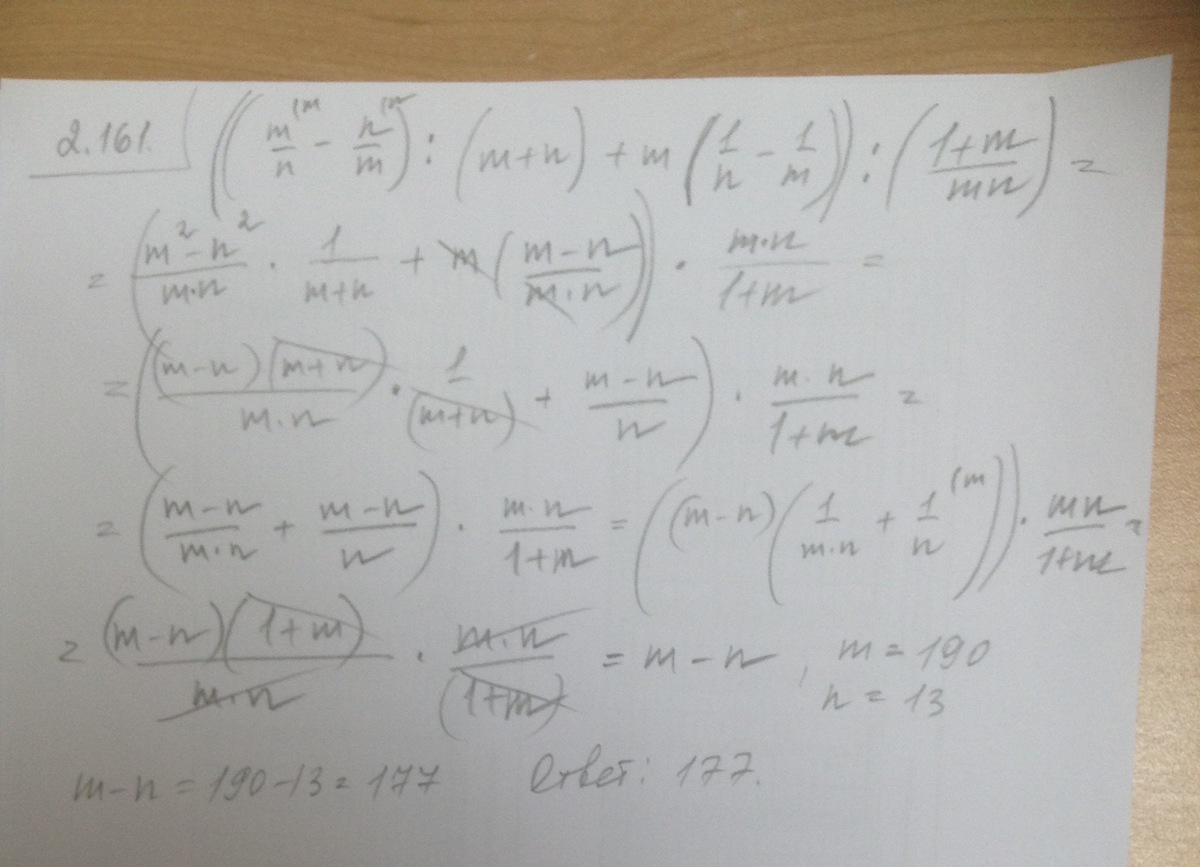 2.161. ((m/n^(m - n/m^(n) : (m+n) + m (1/n - 1/m)) : ((1+m)/(mn)) =
= ((m²-n²)/(m·n) · 1/(m+n) + m ((m-n)/(m·n))) · (m·n)/(1+m) =
= (((m-n)(m+n))/(m·n) · 1/(m+n) + (m-n)/n) · (m·n)/(1+m) =
= ((m-n)/(m·n) + (m-n)/n) · (m·n)/(1+m) = ((m-n)(1/(m·n) + 1/n^(m)) · (mn)/(1+m) =
= ((m-n)(1+m))/(m·n) · (m·n)/(1+m) = m-n, m=190
n=13
m-n=190-13=177 Ответ: 177.